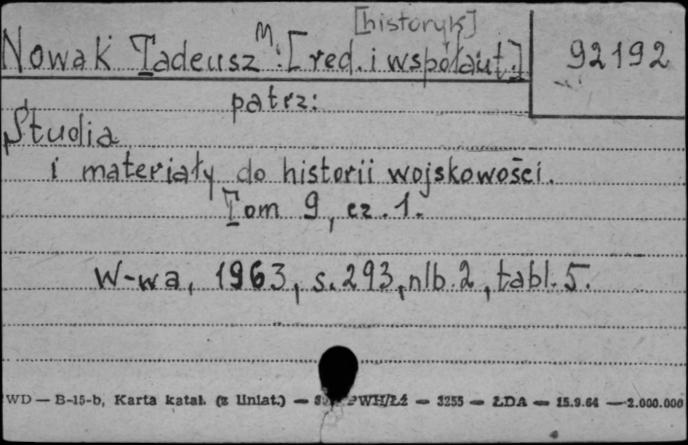 [historyk]
Nowak Tadeusz M. [red. i współaut.]
92192
patrz:
Studia
i materiały do historii wojskowości.
Tom 9, cz. 1.
W-wa, 1963, s. 293, nlb. 2, tabl. 5.
WD — B-15-b, Karta katal. (z liniat.) — PWH/Łź — 3255 — ŁDA — 15.9.64 — 2.000.000